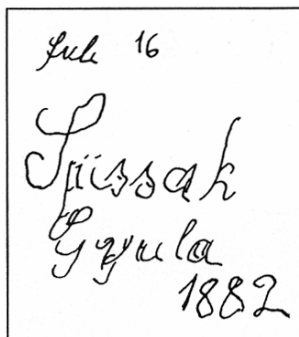 16
Spissak
Gyula
1882